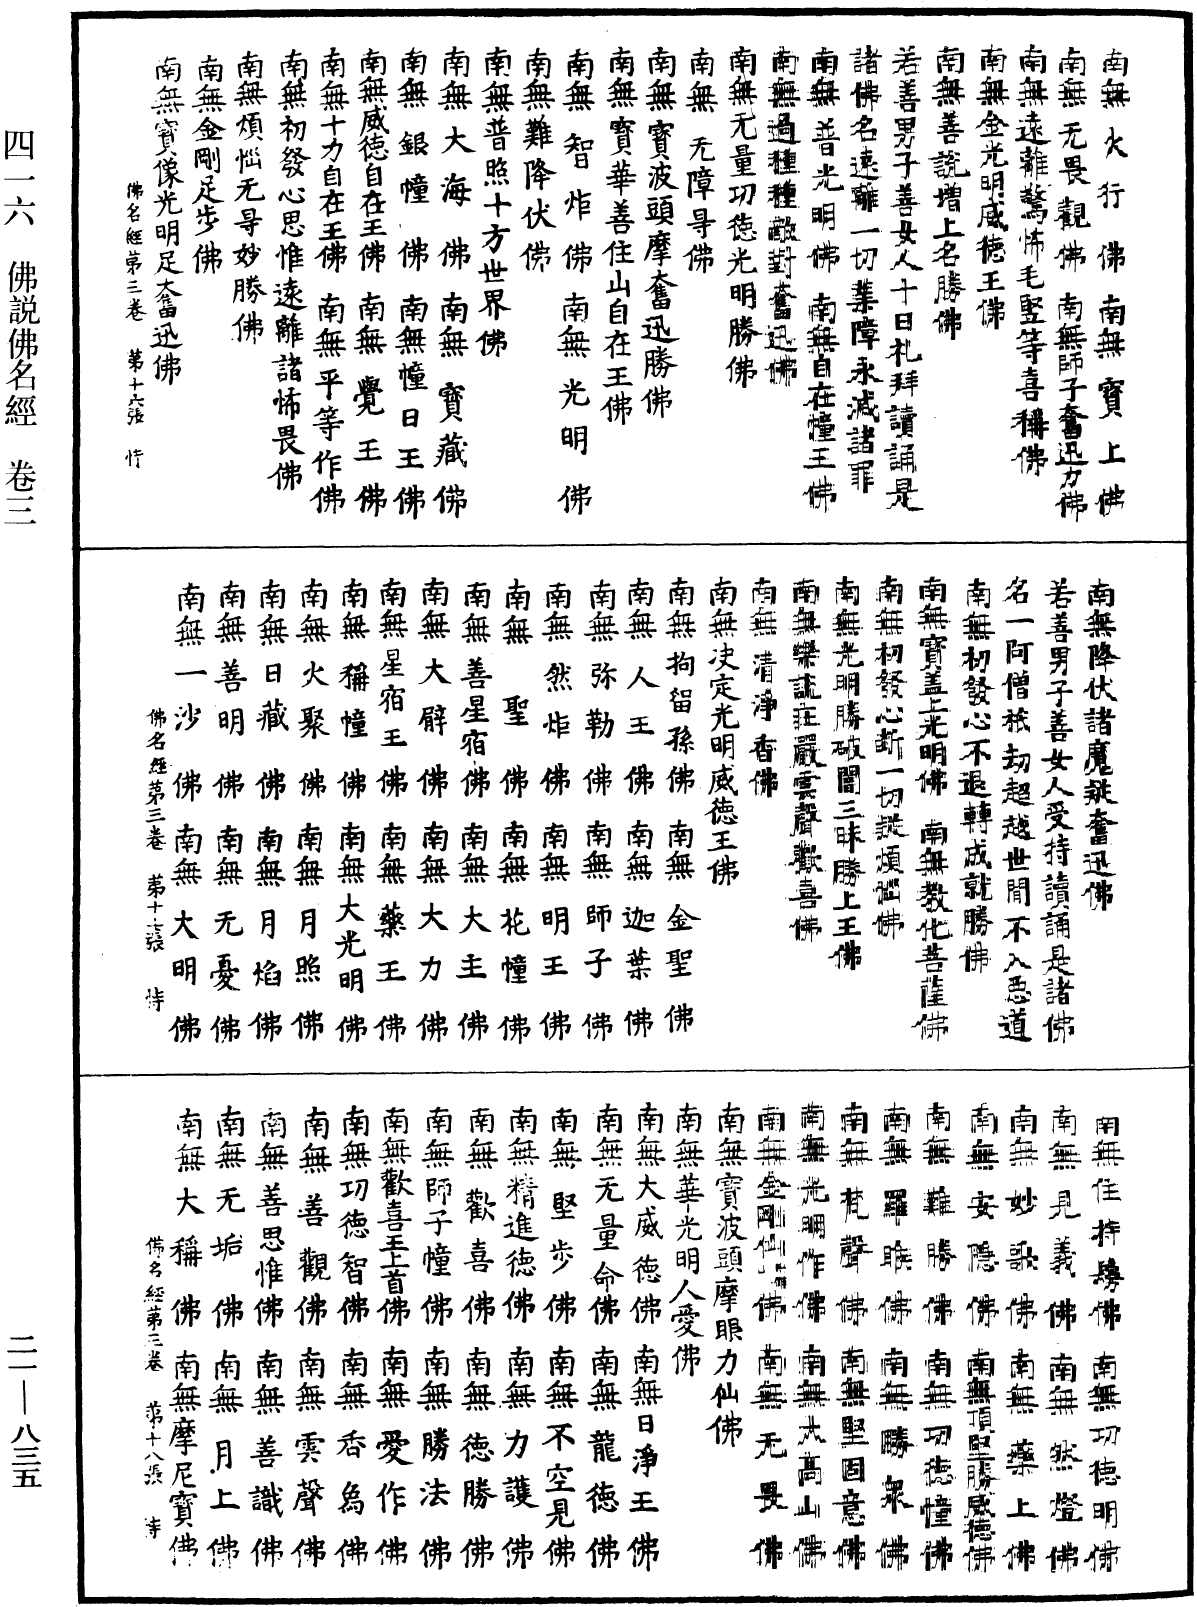 南無火行佛 南無寶上佛
南無无畏觀佛 南無師子奮迅力佛
南無遠離驚怖毛竪等喜稱佛
南無金光明威德王佛
南無善說增上名勝佛
若善男子善女人十日礼拜讀誦是
諸佛名遠離一切業障永滅諸罪
南無普光明佛 南無自在幢王佛
南無過種種敵對奮迅佛
南無无量功德光明勝佛
南無无障㝵佛
南無寶波頭摩奮迅勝佛
南無寶華善住山自在王佛
南無智炸佛 南無光明佛
南無難降伏佛
南無普照十方世界佛
南無大海佛 南無寶藏佛
南無銀幢佛 南無幢日王佛
南無威德自在王佛 南無覺王佛
南無十力自在王佛 南無平等作佛
南無初發心思惟遠離諸怖畏佛
南無煩惱无㝵妙勝佛
南無金剛足步佛
南無寶像光明足奮迅佛
佛名經第三卷 第十六張 恃
南無降伏諸魔疑奮迅佛
若善男子善女人受持讀誦是諸佛
名一阿僧祇劫超越世間不入惡道
南無初發心不退轉成就勝佛
南無寶盖上光明佛 南無教化菩薩佛
南無初發心斷一切疑煩惱佛
南無光明勝破闇三昧勝上王佛
南無樂說莊嚴雲聲歡喜佛
南無清淨香佛
南無决定光明威德王佛
南無拘留孫佛 南無金聖佛
南無人王佛 南無迦葉佛
南無弥勒佛 南無師子佛
南無然炸佛 南無明王佛
南無聖佛 南無花幢佛
南無善星宿佛 南無大主佛
南無大臂佛 南無大力佛
南無星宿王佛 南無藥王佛
南無稱幢佛 南無大光明佛
南無火聚佛 南無月照佛
南無日藏佛 南無月焰佛
南無善明佛 南無无憂佛
南無一沙佛 南無大明佛
佛名經第三卷 第十七張 恃
南無住持勝佛 南無功德明佛
南無見義佛 南無然燈佛
南無妙歌佛 南無藥上佛
南無安隱佛 南無頂堅勝威德佛
南無難勝佛 南無功德幢佛
南無羅睺佛 南無勝衆佛
南無梵聲佛 南無堅固意佛
南無光明作佛 南無大高山佛
南無金剛仙佛 南無无畏佛
南無寶波頭摩眼力仙佛
南無華光明人愛佛
南無大威德佛 南無日淨王佛
南無无量命佛 南無龍德佛
南無堅步佛 南無不空見佛
南無精進德佛 南無力護佛
南無歡喜佛 南無德勝佛
南無師子幢佛 南無勝法佛
南無歡喜王上首佛 南無愛作佛
南無功德智佛 南無香爲佛
南無善觀佛 南無雲聲佛
南無善思惟佛 南無善識佛
南無无垢佛 南無月上佛
南無大稱佛 南無摩尼寶佛
佛名經第三卷 第十八張 恃
四一六 佛説佛名經 卷三
二一—八三五